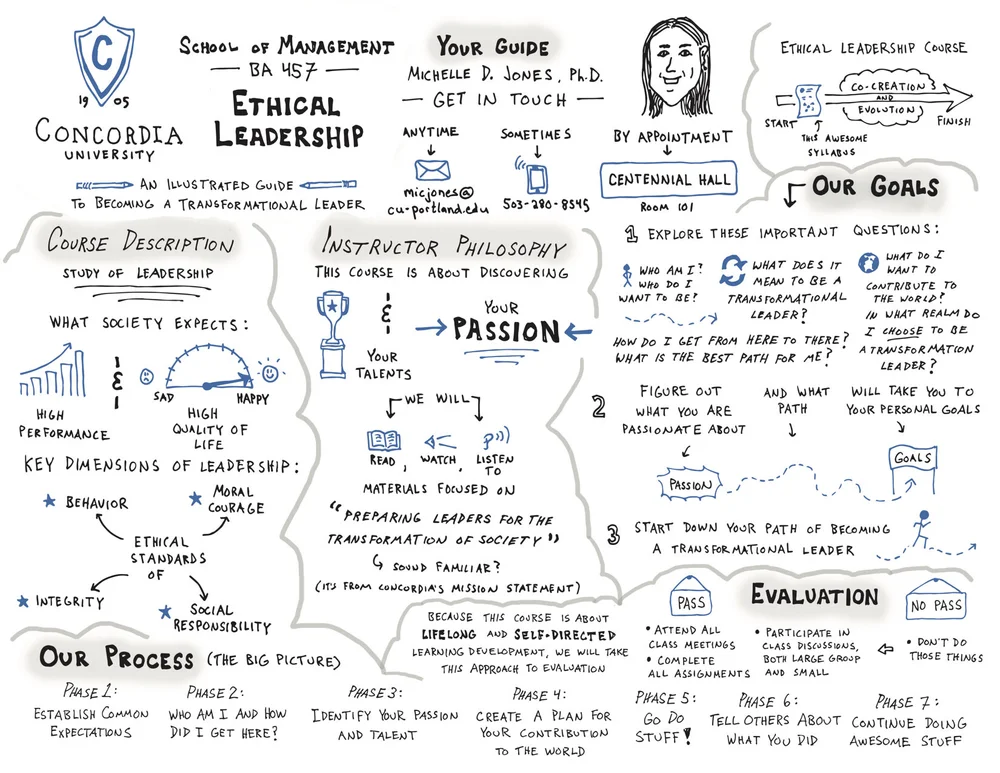 C
19 05
CONCORDIA
UNIVERSITY
SCHOOL OF MANAGEMENT
— BA 457 —
ETHICAL
LEADERSHIP
AN ILLUSTRATED GUIDE
TO BECOMING A TRANSFORMATIONAL LEADER
YOUR GUIDE
MICHELLE D. JONES, PH.D.
— GET IN TOUCH —
ANYTIME
micjones@
cu-portland.edu
SOMETIMES
503-280-8545
BY APPOINTMENT
CENTENNIAL HALL
ROOM 101
ETHICAL LEADERSHIP COURSE
CO-CREATION
AND
EVOLUTION
START
THIS AWESOME
SYLLABUS
FINISH
COURSE DESCRIPTION
STUDY OF LEADERSHIP
WHAT SOCIETY EXPECTS:
HIGH
PERFORMANCE
&
SAD
HAPPY
HIGH
QUALITY OF
LIFE
KEY DIMENSIONS OF LEADERSHIP:
BEHAVIOR
MORAL
COURAGE
ETHICAL
STANDARDS
OF
INTEGRITY
SOCIAL
RESPONSIBILITY
INSTRUCTOR PHILOSOPHY
THIS COURSE IS ABOUT DISCOVERING
YOUR
TALENTS
&
YOUR
PASSION
WE WILL
READ,
WATCH,
LISTEN
TO
MATERIALS FOCUSED ON
"PREPARING LEADERS FOR THE
TRANSFORMATION OF SOCIETY"
SOUND FAMILIAR?
(IT'S FROM CONCORDIA'S MISSION STATEMENT)
OUR GOALS
1 EXPLORE THESE IMPORTANT QUESTIONS:
WHO AM I?
WHO DO I
WANT TO BE?
WHAT DOES IT
MEAN TO BE A
TRANSFORMATIONAL
LEADER?
WHAT DO I
WANT TO
CONTRIBUTE TO
THE WORLD?
IN WHAT REALM DO
I CHOOSE TO BE
A TRANSFORMATION
LEADER?
HOW DO I GET FROM HERE TO THERE?
WHAT IS THE BEST PATH FOR ME?
2
FIGURE OUT
WHAT YOU ARE
PASSIONATE ABOUT
AND WHAT
PATH
WILL TAKE YOU TO
YOUR PERSONAL GOALS
PASSION
GOALS
3 START DOWN YOUR PATH OF BECOMING
A TRANSFORMATIONAL LEADER
BECAUSE THIS COURSE IS ABOUT
LIFELONG AND SELF-DIRECTED
LEARNING DEVELOPMENT, WE WILL TAKE
THIS APPROACH TO EVALUATION
EVALUATION
PASS
• ATTEND ALL
CLASS MEETINGS
• COMPLETE
ALL ASSIGNMENTS
• PARTICIPATE IN
CLASS DISCUSSIONS,
BOTH LARGE GROUP
AND SMALL
NO PASS
• DON'T DO
THOSE THINGS
OUR PROCESS (THE BIG PICTURE)
PHASE 1:
ESTABLISH COMMON
EXPECTATIONS
PHASE 2:
WHO AM I AND HOW
DID I GET HERE?
PHASE 3:
IDENTIFY YOUR PASSION
AND TALENT
PHASE 4:
CREATE A PLAN FOR
YOUR CONTRIBUTION
TO THE WORLD
PHASE 5:
GO DO
STUFF!
PHASE 6:
TELL OTHERS ABOUT
WHAT YOU DID
PHASE 7:
CONTINUE DOING
AWESOME STUFF